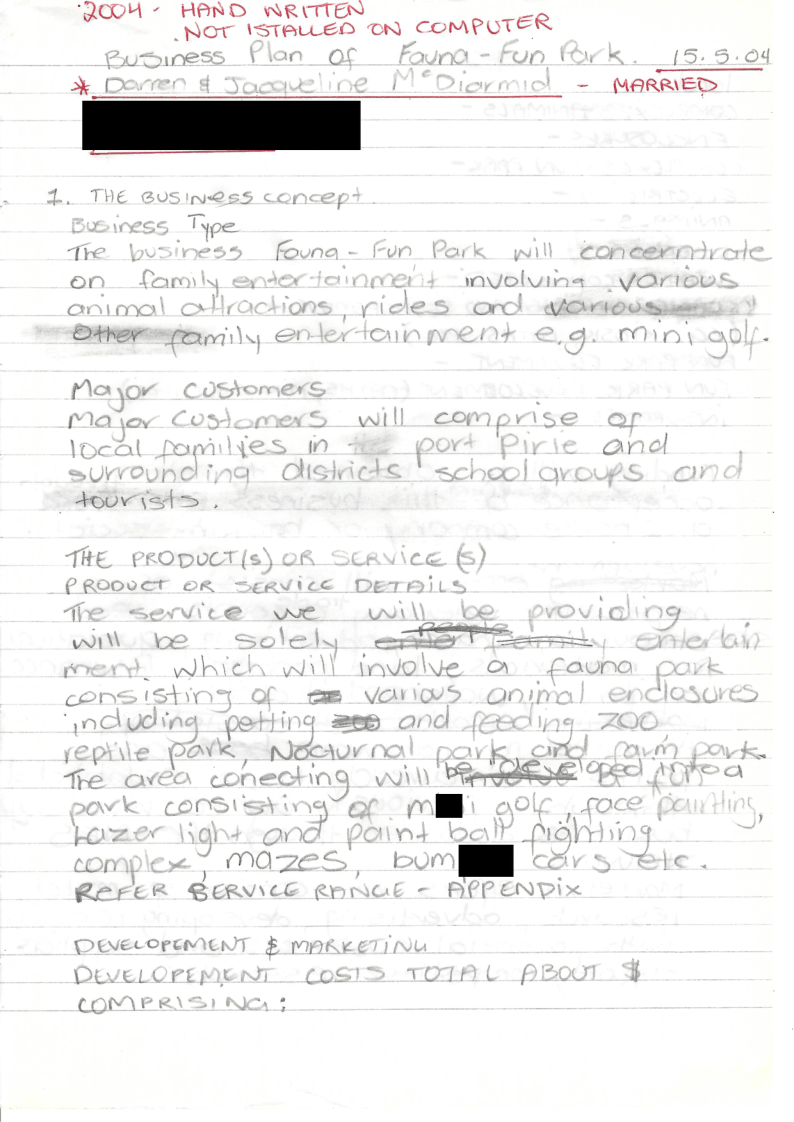 2004 - HAND WRITTEN
NOT ISTALLED ON COMPUTER
Business Plan of Fauna - Fun Park. 15.5.04
* Darren & Jacqueline McDiarmid - MARRIED
1. THE BUSINESS concept
Business Type
The business Fauna - Fun Park will concerntrate
on family entertainment involving various
animal attractions, rides and various
Other family entertainment e.g. mini golf.
Major customers
Major customers will comprise of
local families in port Pirie and
surrounding districts school groups and
tourists.
THE PRODUCT(s) OR SERVICE (S)
PRODUCT OR SERVICE DETAILS
The service we will be providing
will be solely family entertain
ment. which will involve a fauna park
consisting of various animal enclosures
including petting zoo and feeding zoo
reptile park, Nocturnal park and farm park.
The area conecting will be developed into a fun
park consisting of m i golf, face painting,
Lazer light and paint ball fighting
complex, mazes, bum cars etc.
REFER SERVICE RANGE - APPENDIX
DEVELOPEMENT & MARKETING
DEVELOPEMENT COSTS TOTAL ABOUT $
COMPRISING: